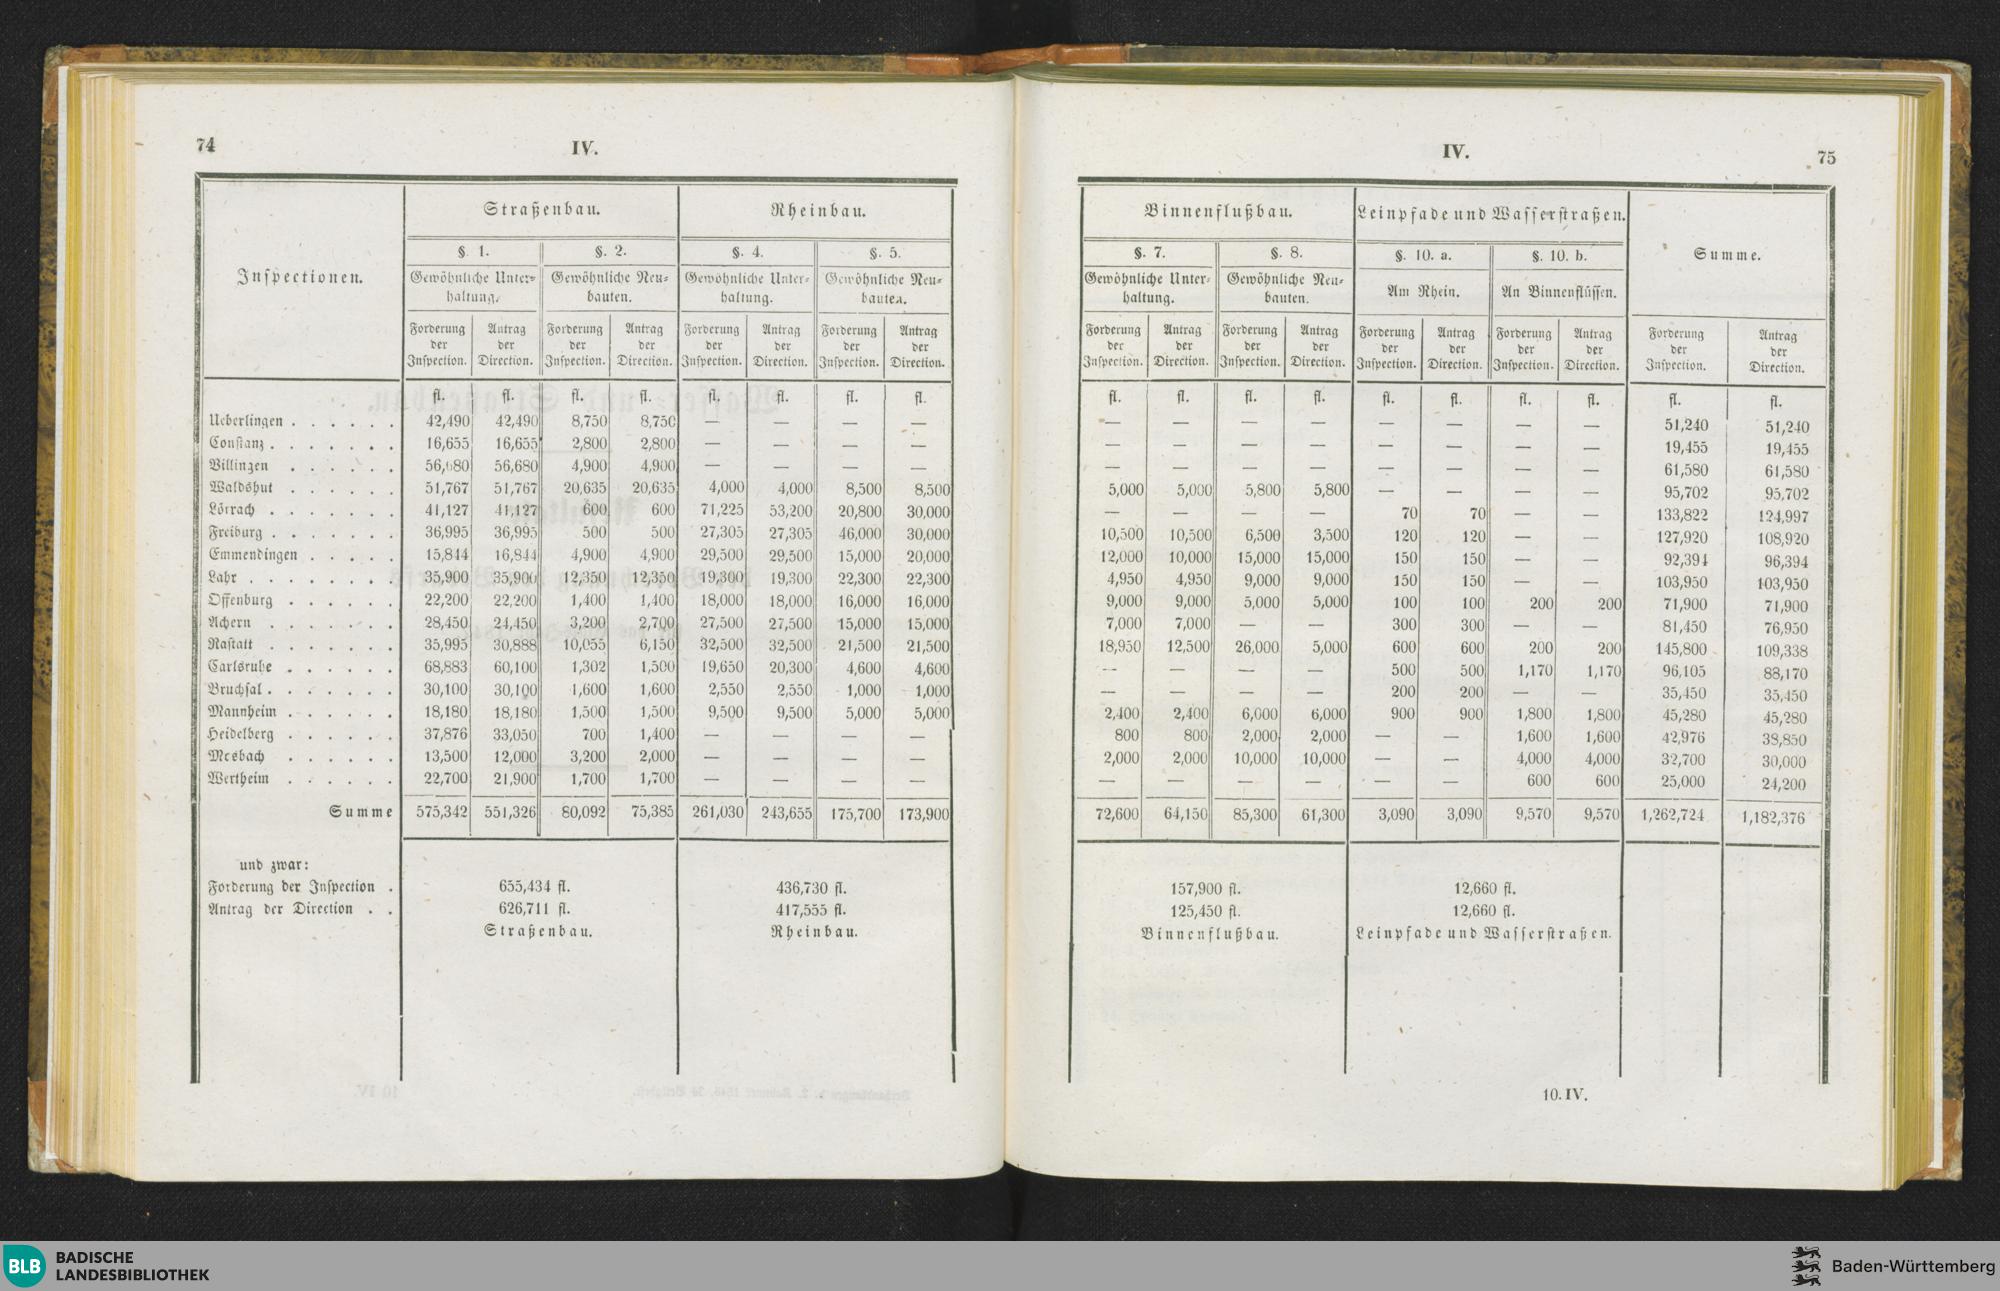 74
IV.
Straßenbau.
Rheinbau.
Inspectionen.
§. 1.
§. 2.
§. 4.
§. 5.
Gewöhnliche Unter-
haltung.
Gewöhnliche Neu-
bauten.
Gewöhnliche Unter-
haltung.
Gewöhnliche Neu-
bauten.
Forderung der Inspection.
Antrag der Direction.
Forderung der Inspection.
Antrag der Direction.
Forderung der Inspection.
Antrag der Direction.
Forderung der Inspection.
Antrag der Direction.
fl. fl. fl. fl. fl. fl. fl. fl.
Ueberlingen . . . . . . 42,490 42,490 8,750 8,750 — — — —
Constanz . . . . . . . 16,655 16,655 2,800 2,800 — — — —
Villingen . . . . . . 56,680 56,680 4,900 4,900 — — — —
Waldshut . . . . . . 51,767 51,767 20,635 20,635 4,000 4,000 8,500 8,500
Lörrach . . . . . . . 41,127 41,127 600 600 71,225 53,200 20,800 30,000
Freiburg . . . . . . . 36,995 36,995 500 500 27,305 27,305 46,000 30,000
Emmendingen . . . . . 15,844 16,844 4,900 4,900 29,500 29,500 15,000 20,000
Lahr . . . . . . . . 35,900 35,900 12,350 12,350 19,300 19,300 22,300 22,300
Offenburg . . . . . . 22,200 22,200 1,400 1,400 18,000 18,000 16,000 16,000
Achern . . . . . . . 28,450 24,450 3,200 2,700 27,500 27,500 15,000 15,000
Rastatt . . . . . . . 35,995 30,888 10,055 6,150 32,500 32,500 21,500 21,500
Carlsruhe . . . . . . 68,883 60,100 1,302 1,500 19,650 20,300 4,600 4,600
Bruchsal . . . . . . . 30,100 30,100 1,600 1,600 2,550 2,550 1,000 1,000
Mannheim . . . . . . 18,180 18,180 1,500 1,500 9,500 9,500 5,000 5,000
Heidelberg . . . . . . 37,876 33,050 700 1,400 — — — —
Mosbach . . . . . . 13,500 12,000 3,200 2,000 — — — —
Wertheim . . . . . . 22,700 21,900 1,700 1,700 — — — —
Summe 575,342 551,326 80,092 75,385 261,030 243,655 175,700 173,900
und zwar:
Forderung der Inspection . 655,434 fl. 436,730 fl.
Antrag der Direction . . 626,711 fl. 417,555 fl.
Straßenbau. Rheinbau.
IV.
75
Binnenflußbau.
Leinpfade und Wasserstraßen.
Summe.
§. 7.
§. 8.
§. 10. a.
§. 10. b.
Gewöhnliche Unter-
haltung.
Gewöhnliche Neu-
bauten.
Am Rhein.
An Binnenflüssen.
Forderung der Inspection.
Antrag der Direction.
Forderung der Inspection.
Antrag der Direction.
Forderung der Inspection.
Antrag der Direction.
Forderung der Inspection.
Antrag der Direction.
Forderung der Inspection.
Antrag der Direction.
fl. fl. fl. fl. fl. fl. fl. fl. fl. fl.
— — — — — — — — 51,240 51,240
— — — — — — — — 19,455 19,455
— — — — — — — — 61,580 61,580
5,000 5,000 5,800 5,800 — — — — 95,702 95,702
— — — — 70 70 — — 133,822 124,997
10,500 10,500 6,500 3,500 120 120 — — 127,920 108,920
12,000 10,000 15,000 15,000 150 150 — — 92,394 96,394
4,950 4,950 9,000 9,000 150 150 — — 103,950 103,950
9,000 9,000 5,000 5,000 100 100 200 200 71,900 71,900
7,000 7,000 — — 300 300 — — 81,450 76,950
18,950 12,500 26,000 5,000 600 600 200 200 145,800 109,338
— — — — 500 500 1,170 1,170 96,105 88,170
— — — — 200 200 — — 35,450 35,450
2,400 2,400 6,000 6,000 900 900 1,800 1,800 45,280 45,280
800 800 2,000 2,000 — — 1,600 1,600 42,976 38,850
2,000 2,000 10,000 10,000 — — 4,000 4,000 32,700 30,000
— — — — — — 600 600 25,000 24,200
72,600 64,150 85,300 61,300 3,090 3,090 9,570 9,570 1,262,724 1,182,376
157,900 fl. 12,660 fl.
125,450 fl. 12,660 fl.
Binnenflußbau. Leinpfade und Wasserstraßen.
10. IV.
BLB BADISCHE
LANDESBIBLIOTHEK
Baden-Württemberg